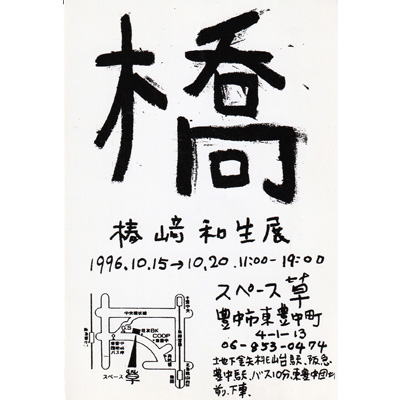 橋
椿﨑 和生展
1996.10.15→10.20.11:00-19:00
スペース草
豊中市東豊中町
4-1-13
06-853-0474
地下鉄桃山台駅、阪急
豊中駅、バス10分、東豊中団地
前、下車、
中央環状線
住友BK
COOP
スペース
草